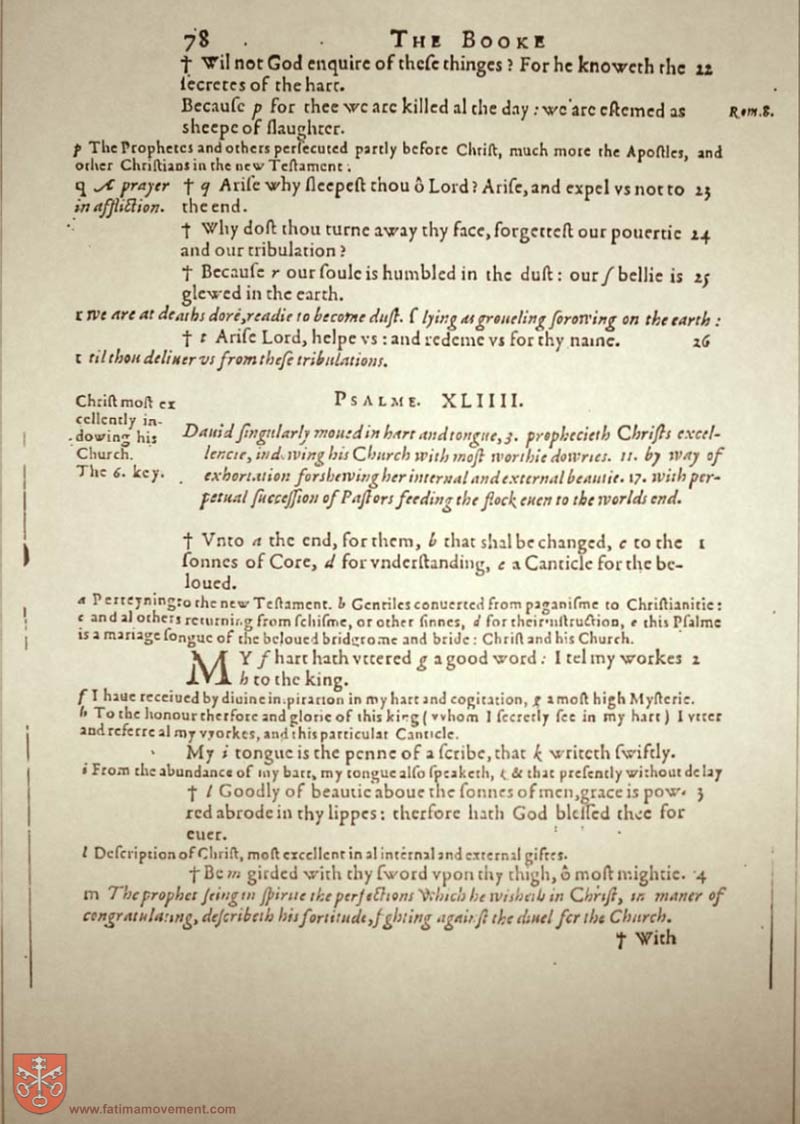 78 THE BOOKE
† Wil not God enquire of theſe thinges? For he knoweth the 22
ſecretes of the hart.
Becauſe p for thee we are killed al the day: we are eſtemed as Rom.8.
sheepe of ſlaughter.
p The Prophetes and others perſecuted partly before Chriſt, much more the Apoſtles, and
other Chriſtians in the new Teſtament.
q A prayer † q Ariſe why ſleepeſt thou ô Lord? Ariſe, and expel vs not to 23
in affliction. the end.
† Why doſt thou turne away thy face, forgetteſt our pouertie 24
and our tribulation?
† Becauſe r our ſoule is humbled in the duſt: our ſ bellie is 25
glewed in the earth.
r we are at deaths dore, readie to become duſt. ſ lying as groueling ſorowing on the earth:
† t Ariſe Lord, helpe vs: and redeme vs for thy name. 26
t til thou deliuer vs from theſe tribulations.
Chriſt moſt ex
cellently in-
dowing his
Church.
The 6. key.
PSALME. XLIIII.
Dauid ſingularly moued in hart and tongue, 3. prophecieth Chriſts excel-
lencie, indowing his Church with moſt worthie dowries. 11. by way of
exhortation forshewing her internal and external beautie. 17. with per-
petual ſucceſſion of Paſtors feeding the flock euen to the worlds end.
† Vnto a the end, for them, b that shal be changed, c to the 1
ſonnes of Core, d for vnderſtanding, e a Canticle for the be-
loued.
a Perteyning to the new Teſtament. b Gentiles conuerted from paganiſme to Chriſtianitie:
c and al others returning from ſchiſme, or other ſinnes, d for their inſtruction, e this Pſalme
is a mariage ſongue of the beloued bridgrome and bride: Chriſt and his Church.
MY f hart hath vttered g a good word: I tel my workes 2
h to the king.
f I haue receiued by diuine inſpiration in my hart and cogitation, g a moſt high Myſterie.
h To the honour therfore and glorie of this king (vvhom I ſecretly ſee in my hart) I vtter
and referre al my vvorkes, and this particular Canticle.
My i tongue is the penne of a ſcribe, that k writeth ſwiftly.
i From the abundance of my hart, my tongue alſo ſpeaketh, k & that preſently without delay
† l Goodly of beautie aboue the ſonnes of men, grace is pow- 3
red abrode in thy lippes: therfore hath God bleſſed thee for
euer.
l Deſcription of Chriſt, moſt excellent in al internal and external giftes.
† Be m girded with thy ſword vpon thy thigh, ô moſt mightie. 4
m The prophet ſeing in ſpirite the perfections which he wisheth in Chriſt, in maner of
congratulating, deſcribeth his fortitude, fighting againſt the diuel for the Church.
† With
www.fatimamovement.com